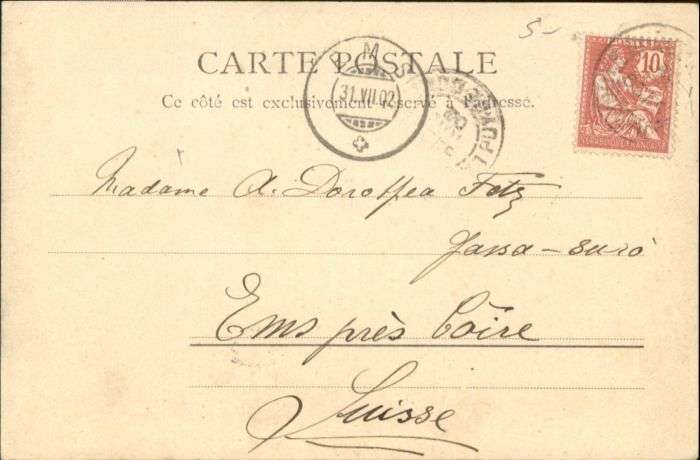 5-
CARTE POSTALE
Ce côté est exclusivement réservé à l'adresse.
EMS
31.VII.02
10
RÉPUBLIQUE FRANÇAISE
Madame A. Doroffea Fetz
Ems près Coire
Suisse